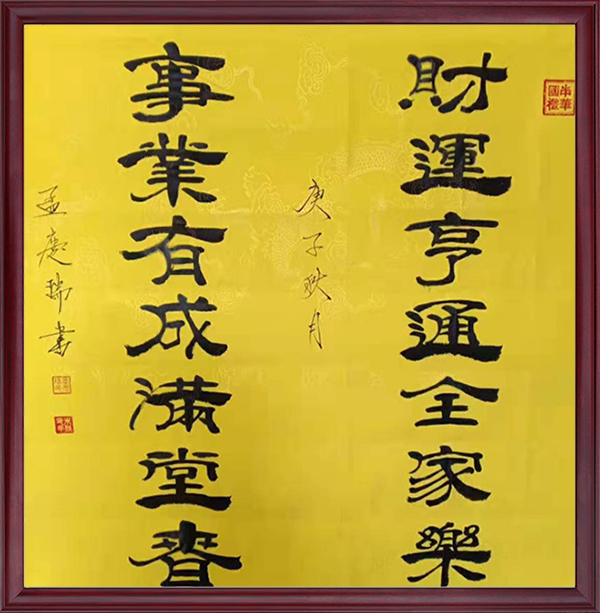 財運亨通全家樂
庚子秋月
事業有成滿堂春
孟慶瑞書